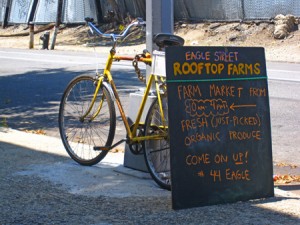 EAGLE STREET
ROOFTOP FARMS
FARM MARKET FROM
FRESH (JUST-PICKED)
ORGANIC PRODUCE
COME ON UP!
# 44 EAGLE